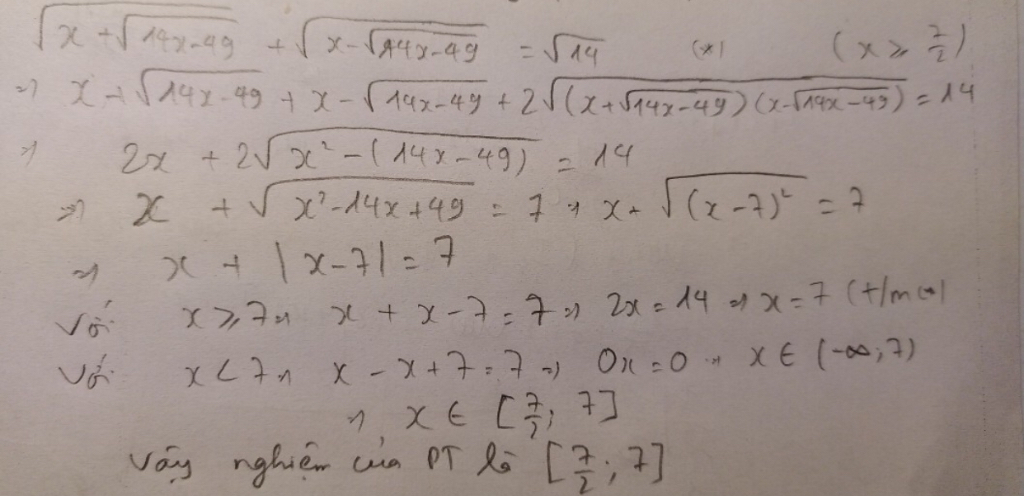 √(x + √(14x-49)) + √(x - √(14x-49)) = √14 (*) (x ⩾ 7/2)
=> x + √(14x-49) + x - √(14x-49) + 2√((x+√(14x-49))(x-√(14x-49))) = 14
=> 2x + 2√(x² - (14x-49)) = 14
=> x + √(x²-14x+49) = 7 => x + √((x-7)²) = 7
=> x + |x-7| = 7
Với x ⩾ 7 => x + x - 7 = 7 => 2x = 14 => x = 7 (t/m (*))
Với x < 7 => x - x + 7 = 7 => 0x = 0 => x ∈ (-∞; 7)
=> x ∈ [7/2; 7]
Vậy nghiệm của PT là [7/2; 7]